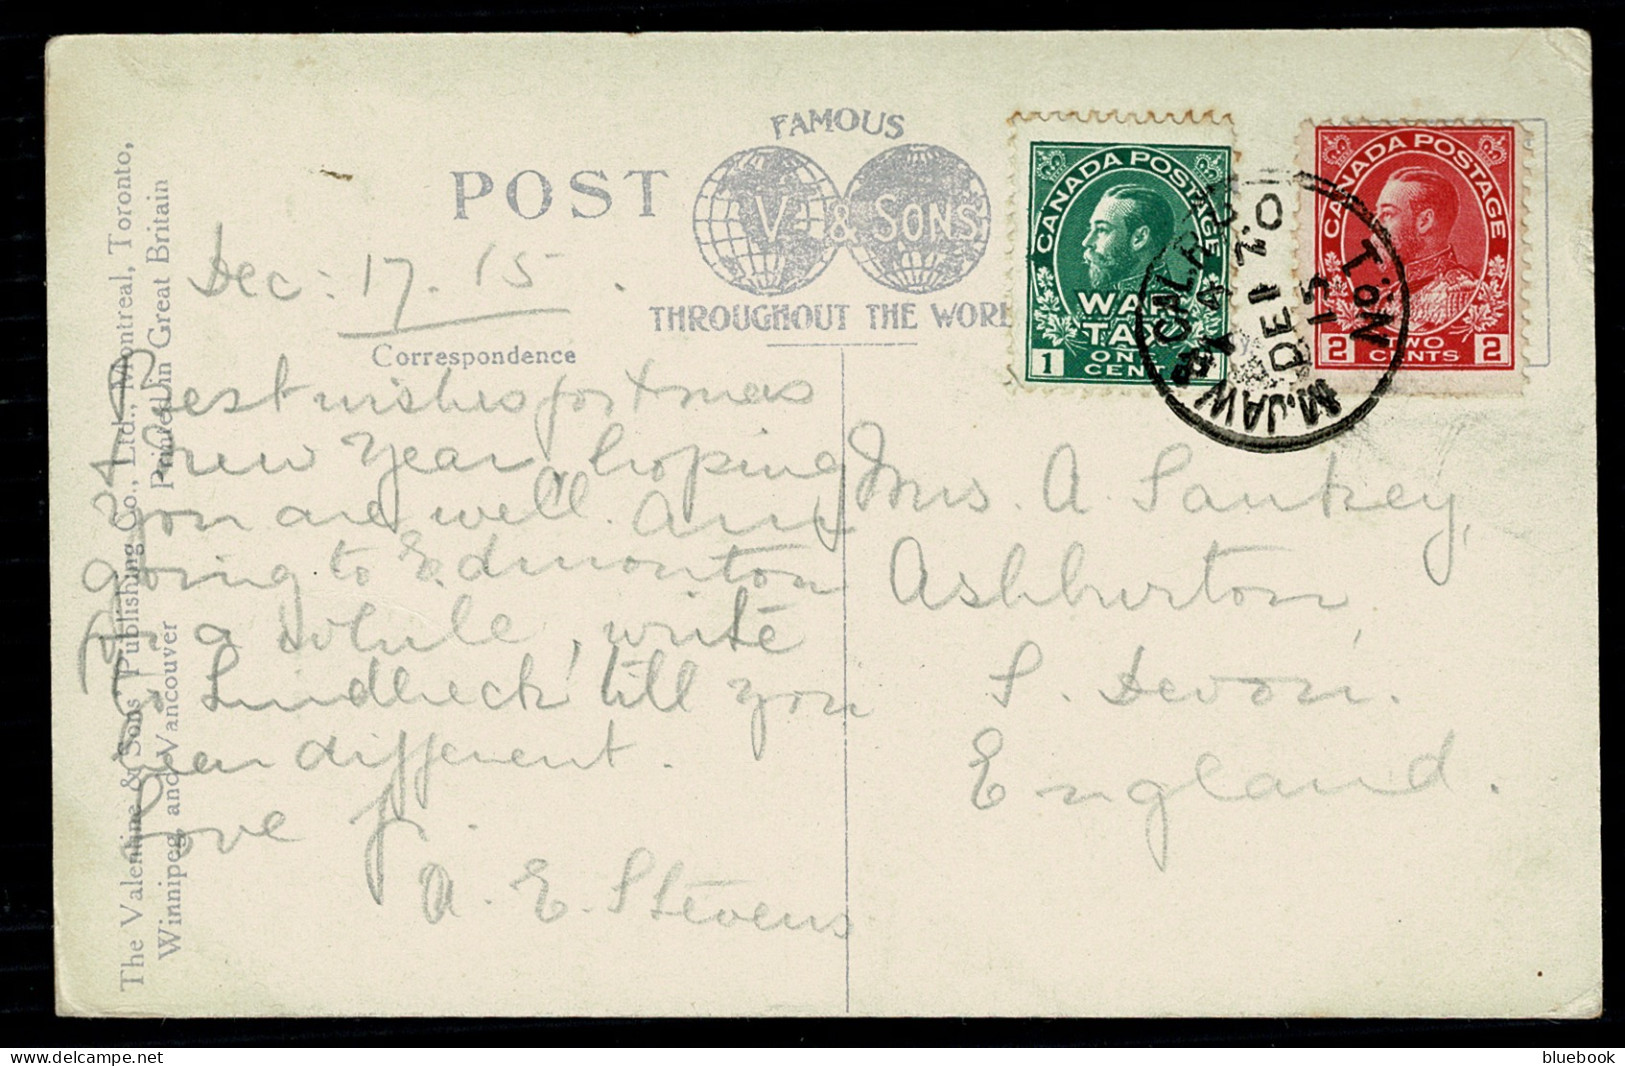 FAMOUS
POST
V. & SONS
THROUGHOUT THE WORL
Dec: 17. 15.
Correspondence
Best wishes for Xmas
& new Year, hoping
you are all well. am
going to Edmonton
in a while, write
to Lundbreck till you
hear different.
Love fr.
A. E. Stevens
Mrs. A. Sankey,
Ashburton,
S. Devon.
England.
CANADA POSTAGE
WAR
TAX
1 ONE
CENT
CANADA POSTAGE
2 TWO 2
CENTS
M.JAW & COL. R.P.O.
No. 1
DE 17
15
The Valentine & Sons' Publishing Co., Ltd., Montreal, Toronto,
Winnipeg, and Vancouver Printed in Great Britain
bluebook